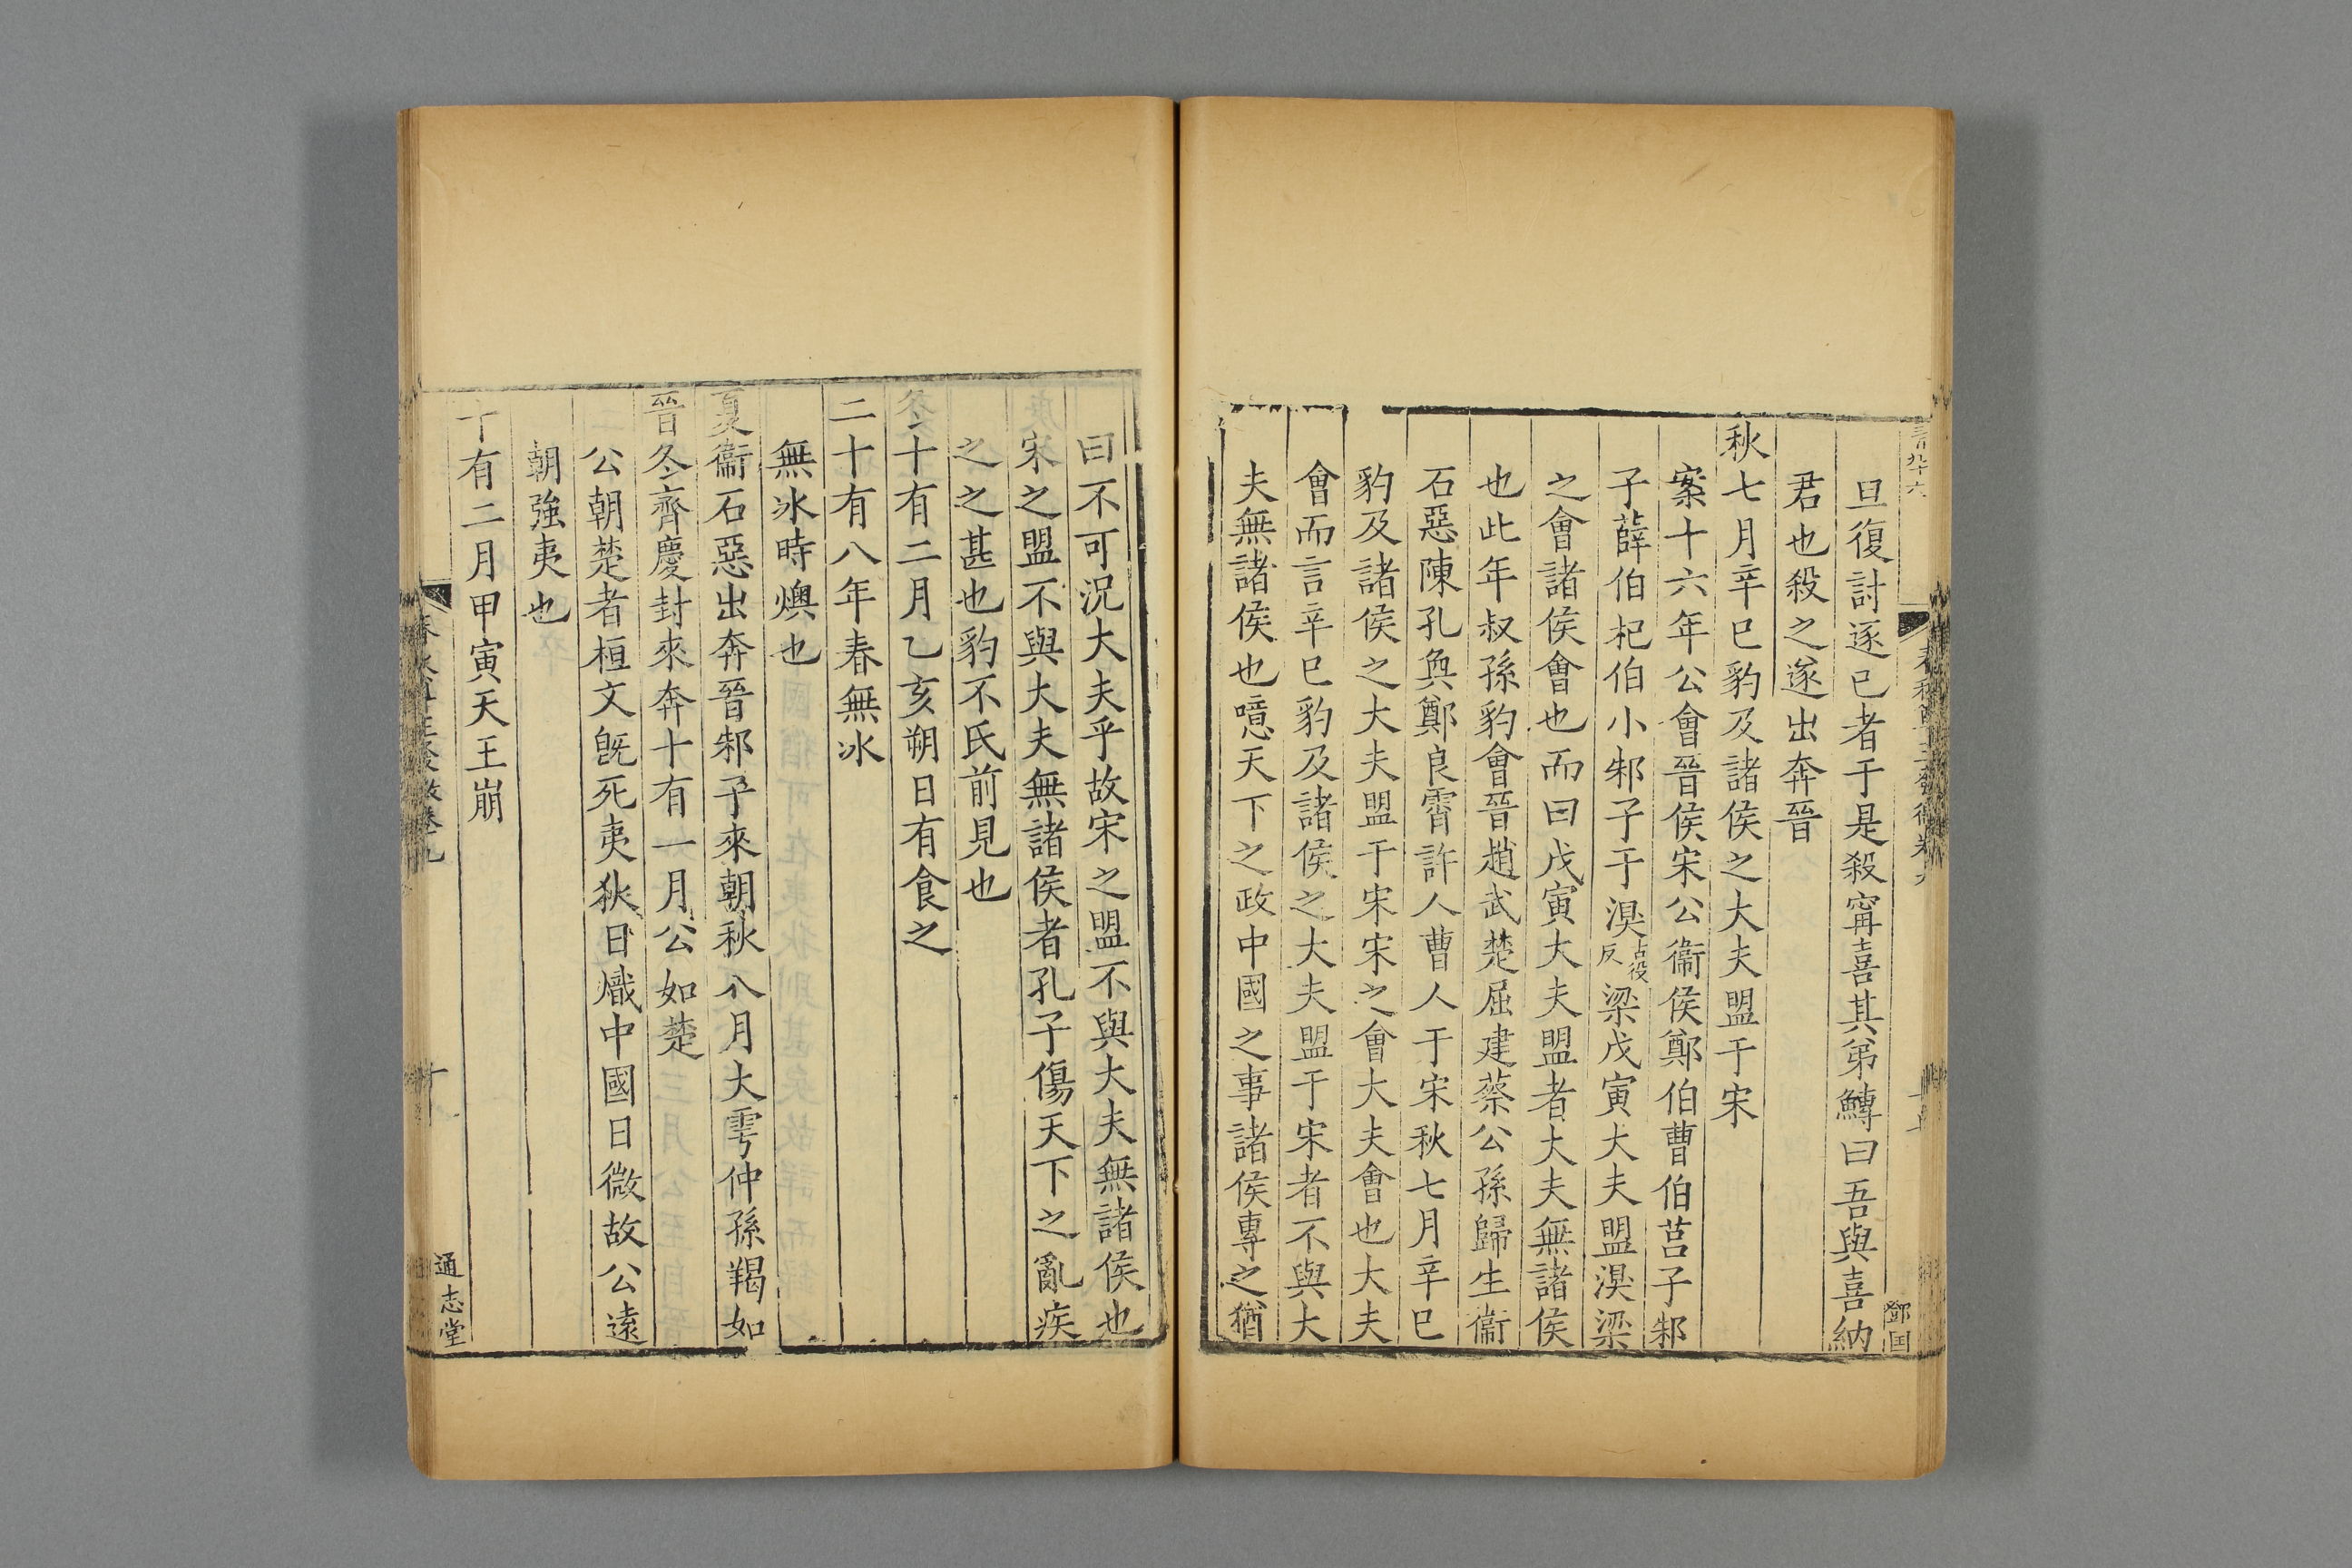 旦復討逐已者于是殺甯喜其弟鱄曰吾與喜納
君也殺之遂出奔晉
秋七月辛巳豹及諸侯之大夫盟于宋
案十六年公會晉侯宋公衞侯鄭伯曹伯莒子邾
子薛伯杞伯小邾子于湨古役反梁戊寅大夫盟湨梁
之會諸侯會也而曰戊寅大夫盟者大夫無諸侯
也此年叔孫豹會晉趙武楚屈建蔡公孫歸生衞
石惡陳孔奐鄭良霄許人曹人于宋秋七月辛巳
豹及諸侯之大夫盟于宋宋之會大夫會也大夫
會而言辛巳豹及諸侯之大夫盟于宋者不與大
夫無諸侯也噫天下之政中國之事諸侯專之猶
曰不可況大夫乎故宋之盟不與大夫無諸侯也
宋之盟不與大夫無諸侯者孔子傷天下之亂疾
之之甚也豹不氏前見也
冬十有二月乙亥朔日有食之
二十有八年春無冰
無冰時燠也
夏衞石惡出奔晉邾子來朝秋八月大雩仲孫羯如
晉冬齊慶封來奔十有一月公如楚
公朝楚者桓文旣死夷狄日熾中國日微故公遠
朝強夷也
十有二月甲寅天王崩
通志堂